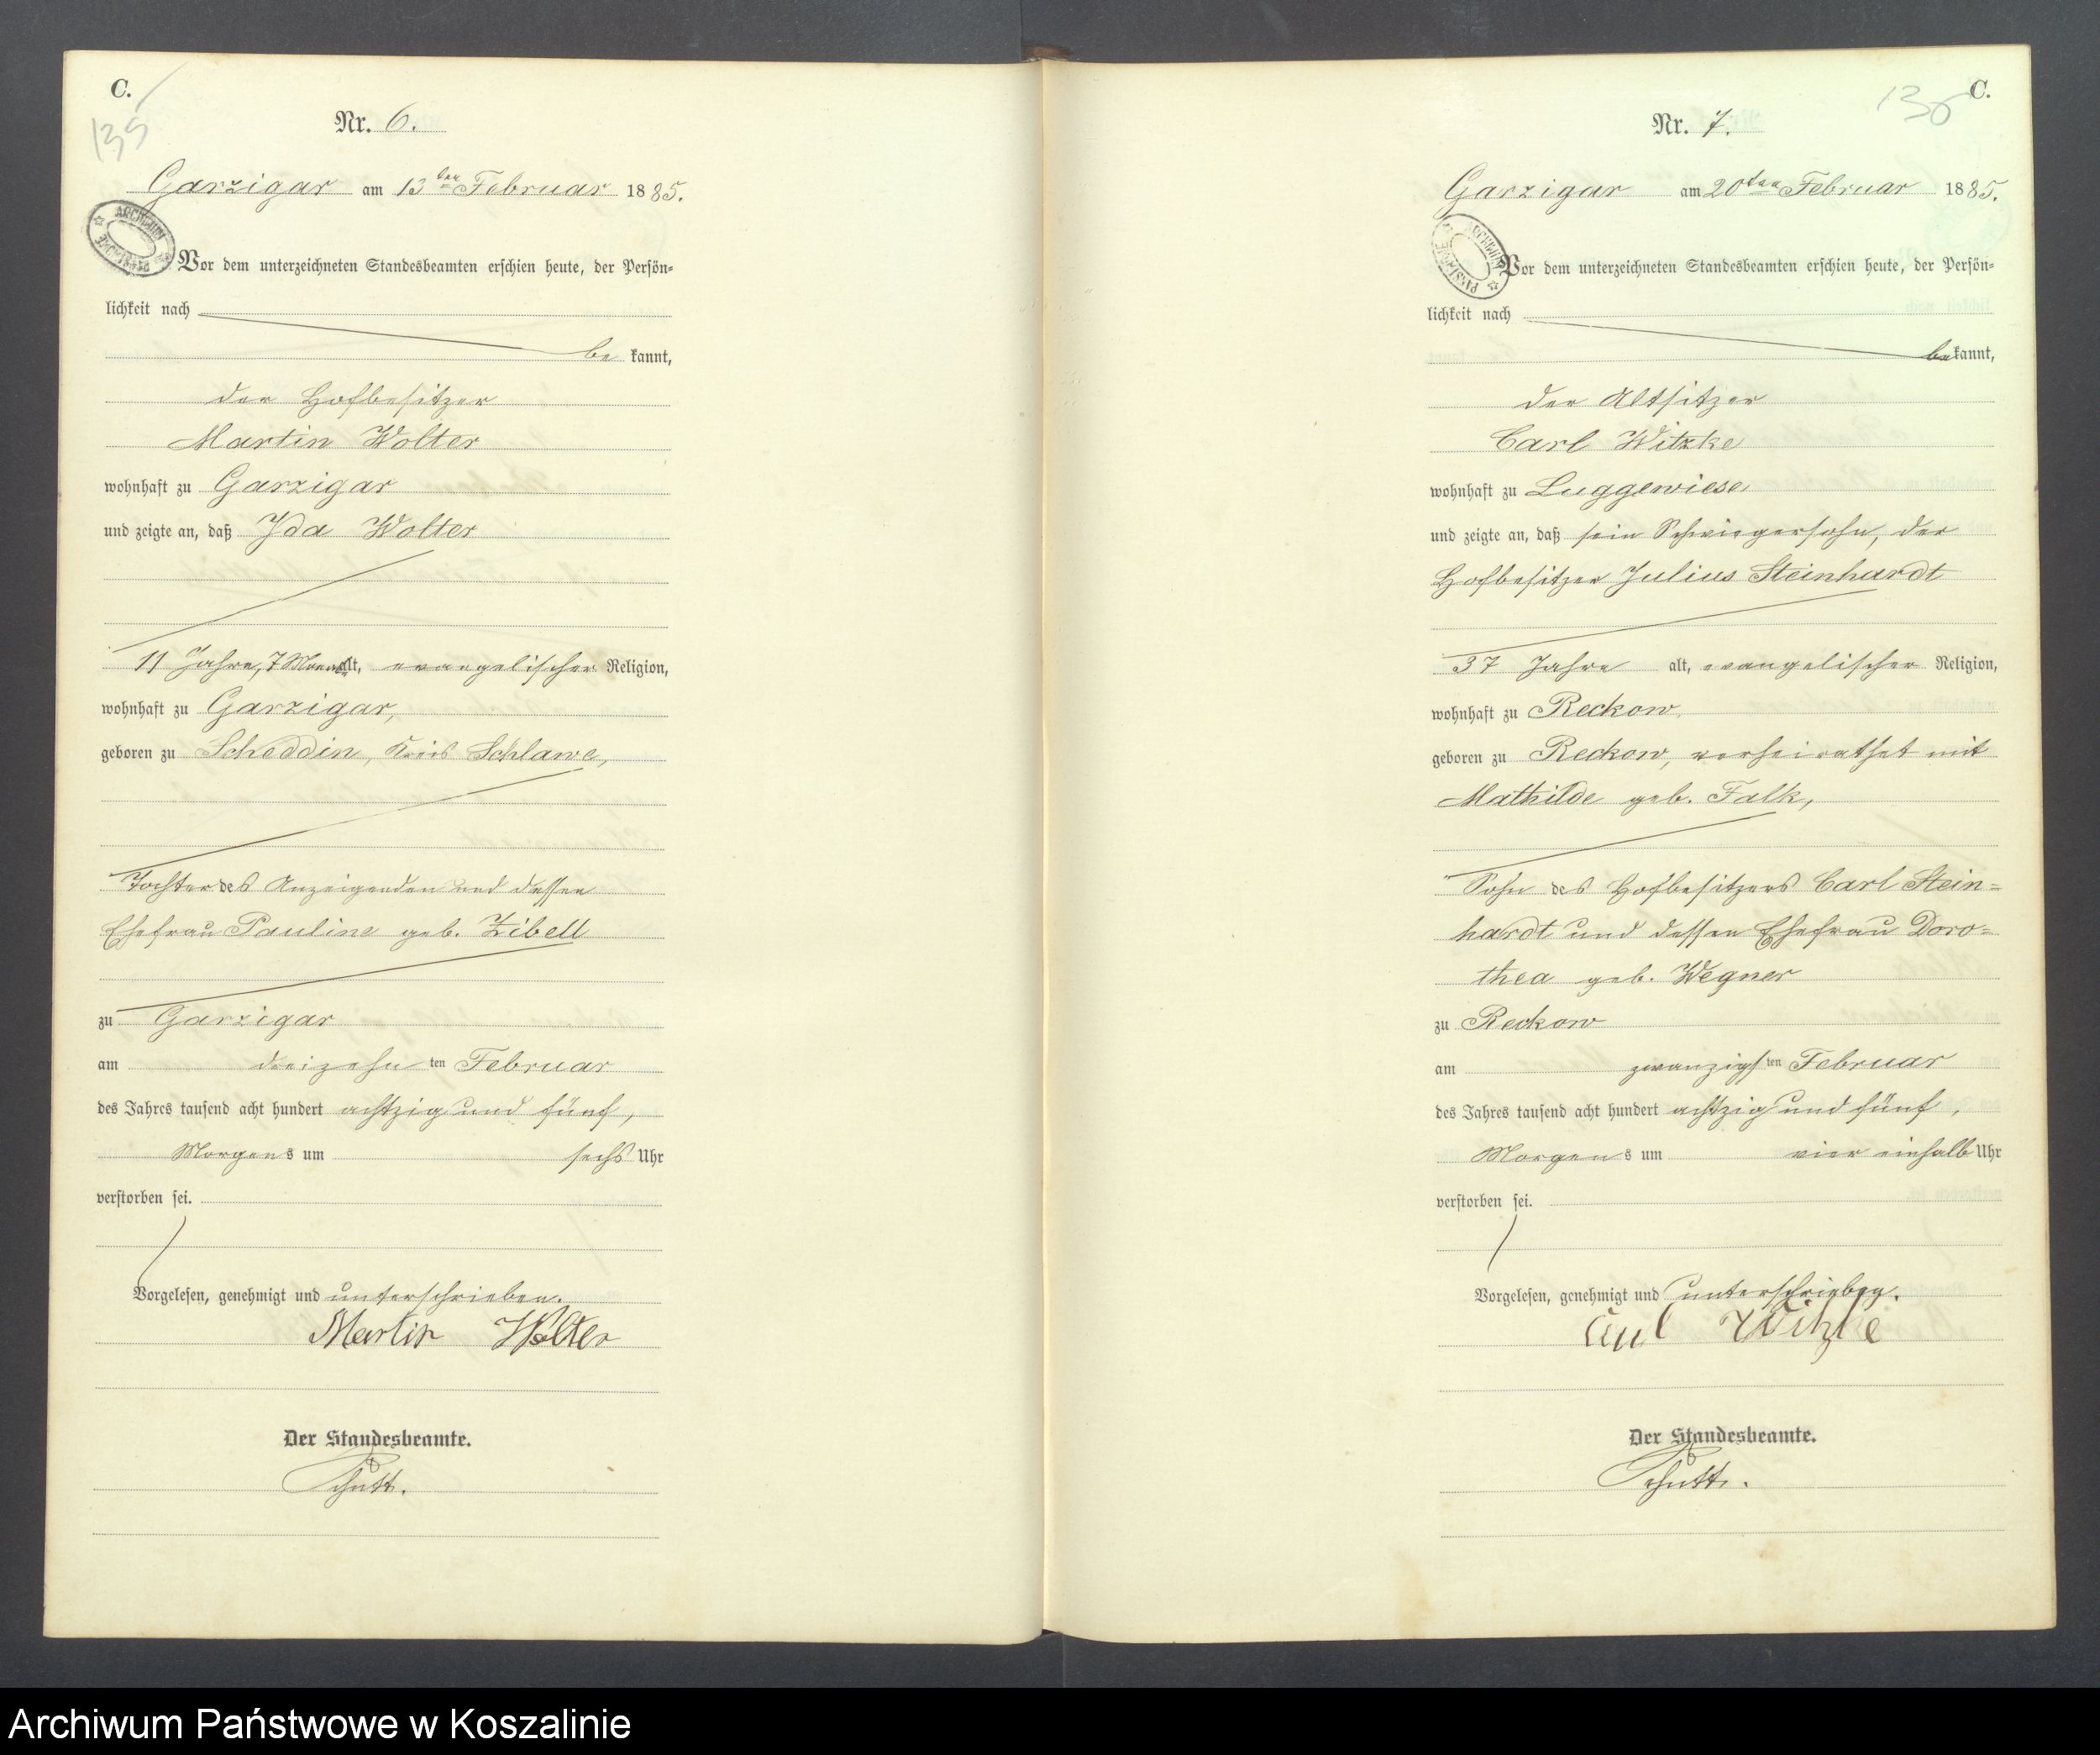 C.
135
Nr. 6.
Garzigar am 13ten Februar 1885.
ARCHIWUM
Vor dem unterzeichneten Standesbeamten erschien heute, der Persön-
lichkeit nach
be kannt,
der Hofbesitzer
Martin Wolter
wohnhaft zu Garzigar
und zeigte an, daß Ida Wolter
11 Jahre, 7 Monat alt, evangelischer Religion,
wohnhaft zu Garzigar,
geboren zu Scheddin, Kreis Schlawe,
Tochter des Anzeigenden und dessen
Ehefrau Pauline geb. Zibell
zu Garzigar
am dreizehn ten Februar
des Jahres tausend acht hundert achtzig und fünf,
Morgens um sechs Uhr
verstorben sei.
Vorgelesen, genehmigt und unterschrieben.
Martin Wolter
Der Standesbeamte.
Schütt.
C.
136
Nr. 7.
Garzigar am 20ten Februar 1885.
ARCHIWUM
Vor dem unterzeichneten Standesbeamten erschien heute, der Persön-
lichkeit nach
bekannt,
der Altsitzer
Carl Witzke
wohnhaft zu Luggewiese
und zeigte an, daß sein Schwiegersohn, der
Hofbesitzer Julius Steinhardt
37 Jahre alt, evangelischer Religion,
wohnhaft zu Reckow,
geboren zu Reckow, verheirathet mit
Mathilde geb. Falk,
Sohn des Hofbesitzers Carl Stein-
hardt und dessen Ehefrau Doro-
thea geb. Wegner
zu Reckow
am zwanzigsten Februar
des Jahres tausend acht hundert achtzig und fünf,
Morgens um vier einhalb Uhr
verstorben sei.
Vorgelesen, genehmigt und unterschrieben.
Carl Witzke
Der Standesbeamte.
Schütt.
Archiwum Państwowe w Koszalinie